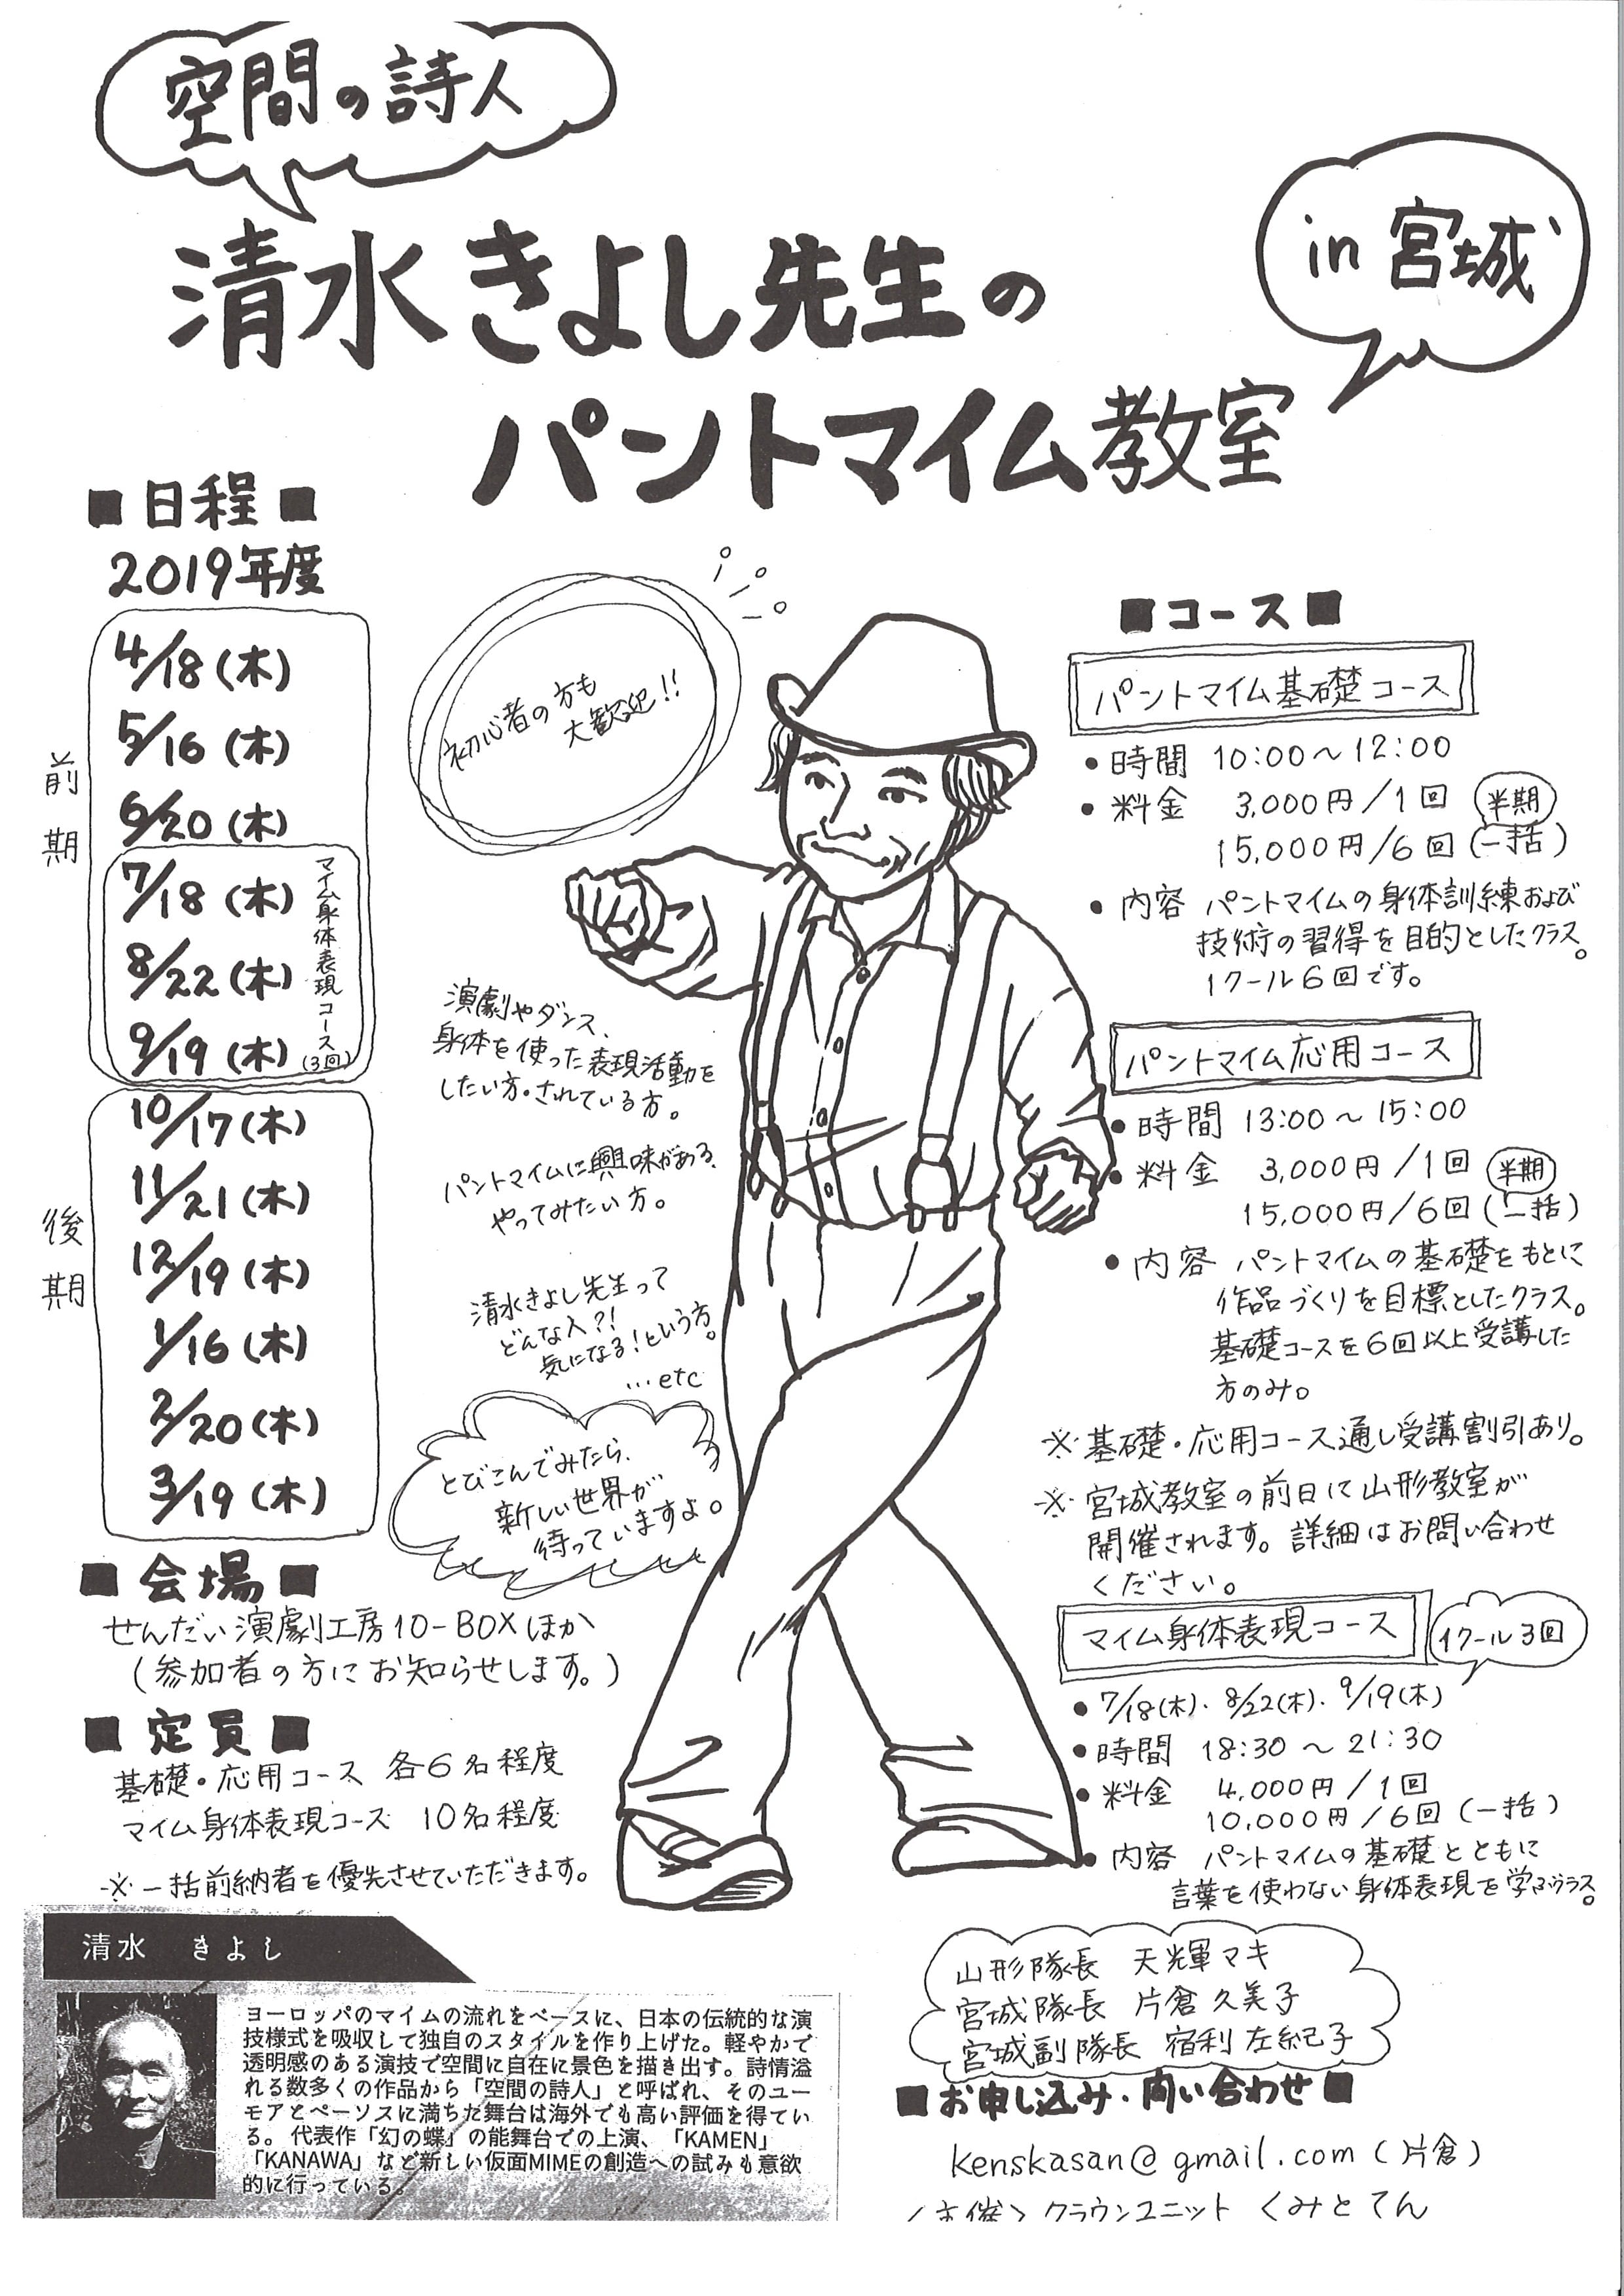 空間の詩人
清水きよし先生の
パントマイム教室
in 宮城
■日程■
2019年度
前期
4/18(木)
5/16(木)
6/20(木)
7/18(木)
8/22(木)
9/19(木)
マイム身体表現コース(3回)
後期
10/17(木)
11/21(木)
12/19(木)
1/16(木)
2/20(木)
3/19(木)
初心者の方も
大歓迎!!
演劇やダンス、
身体を使った表現活動を
したい方。されている方。
パントマイムに興味がある、
やってみたい方。
清水きよし先生って
どんな人?!
気になる!という方。
…etc
とびこんでみたら、
新しい世界が
待っていますよ。
■会場■
せんだい演劇工房10-BOXほか
(参加者の方にお知らせします。)
■定員■
基礎・応用コース 各6名程度
マイム身体表現コース 10名程度
※一括前納者を優先させていただきます。
■コース■
パントマイム基礎コース
•時間 10:00~12:00
•料金 3,000円/1回
15,000円/6回(半期一括)
•内容 パントマイムの身体訓練および
技術の習得を目的としたクラス。
1クール6回です。
パントマイム応用コース
•時間 13:00~15:00
•料金 3,000円/1回
15,000円/6回(半期一括)
•内容 パントマイムの基礎をもとに
作品づくりを目標としたクラス。
基礎コースを6回以上受講した
方のみ。
※基礎・応用コース通し受講割引あり。
※宮城教室の前日に山形教室が
開催されます。詳細はお問い合わせ
ください。
マイム身体表現コース
1クール3回
•7/18(木)、8/22(木)、9/19(木)
•時間 18:30~21:30
•料金 4,000円/1回
10,000円/6回(一括)
•内容 パントマイムの基礎とともに
言葉を使わない身体表現を学ぶクラス。
清水 きよし
ヨーロッパのマイムの流れをベースに、日本の伝統的な演
技様式を吸収して独自のスタイルを作り上げた。軽やかで
透明感のある演技で空間に自在に景色を描き出す。詩情溢
れる数多くの作品から「空間の詩人」と呼ばれ、そのユー
モアとペーソスに満ちた舞台は海外でも高い評価を得てい
る。代表作「幻の蝶」の能舞台での上演、「KAMEN」
「KANAWA」など新しい仮面MIMEの創造への試みも意欲
的に行っている。
山形隊長 天輝マキ
宮城隊長 片倉久美子
宮城副隊長 宿利左紀子
■お申し込み・問い合わせ■
kenskasan@gmail.com(片倉)
〈主催〉クラウンユニット くみとてん